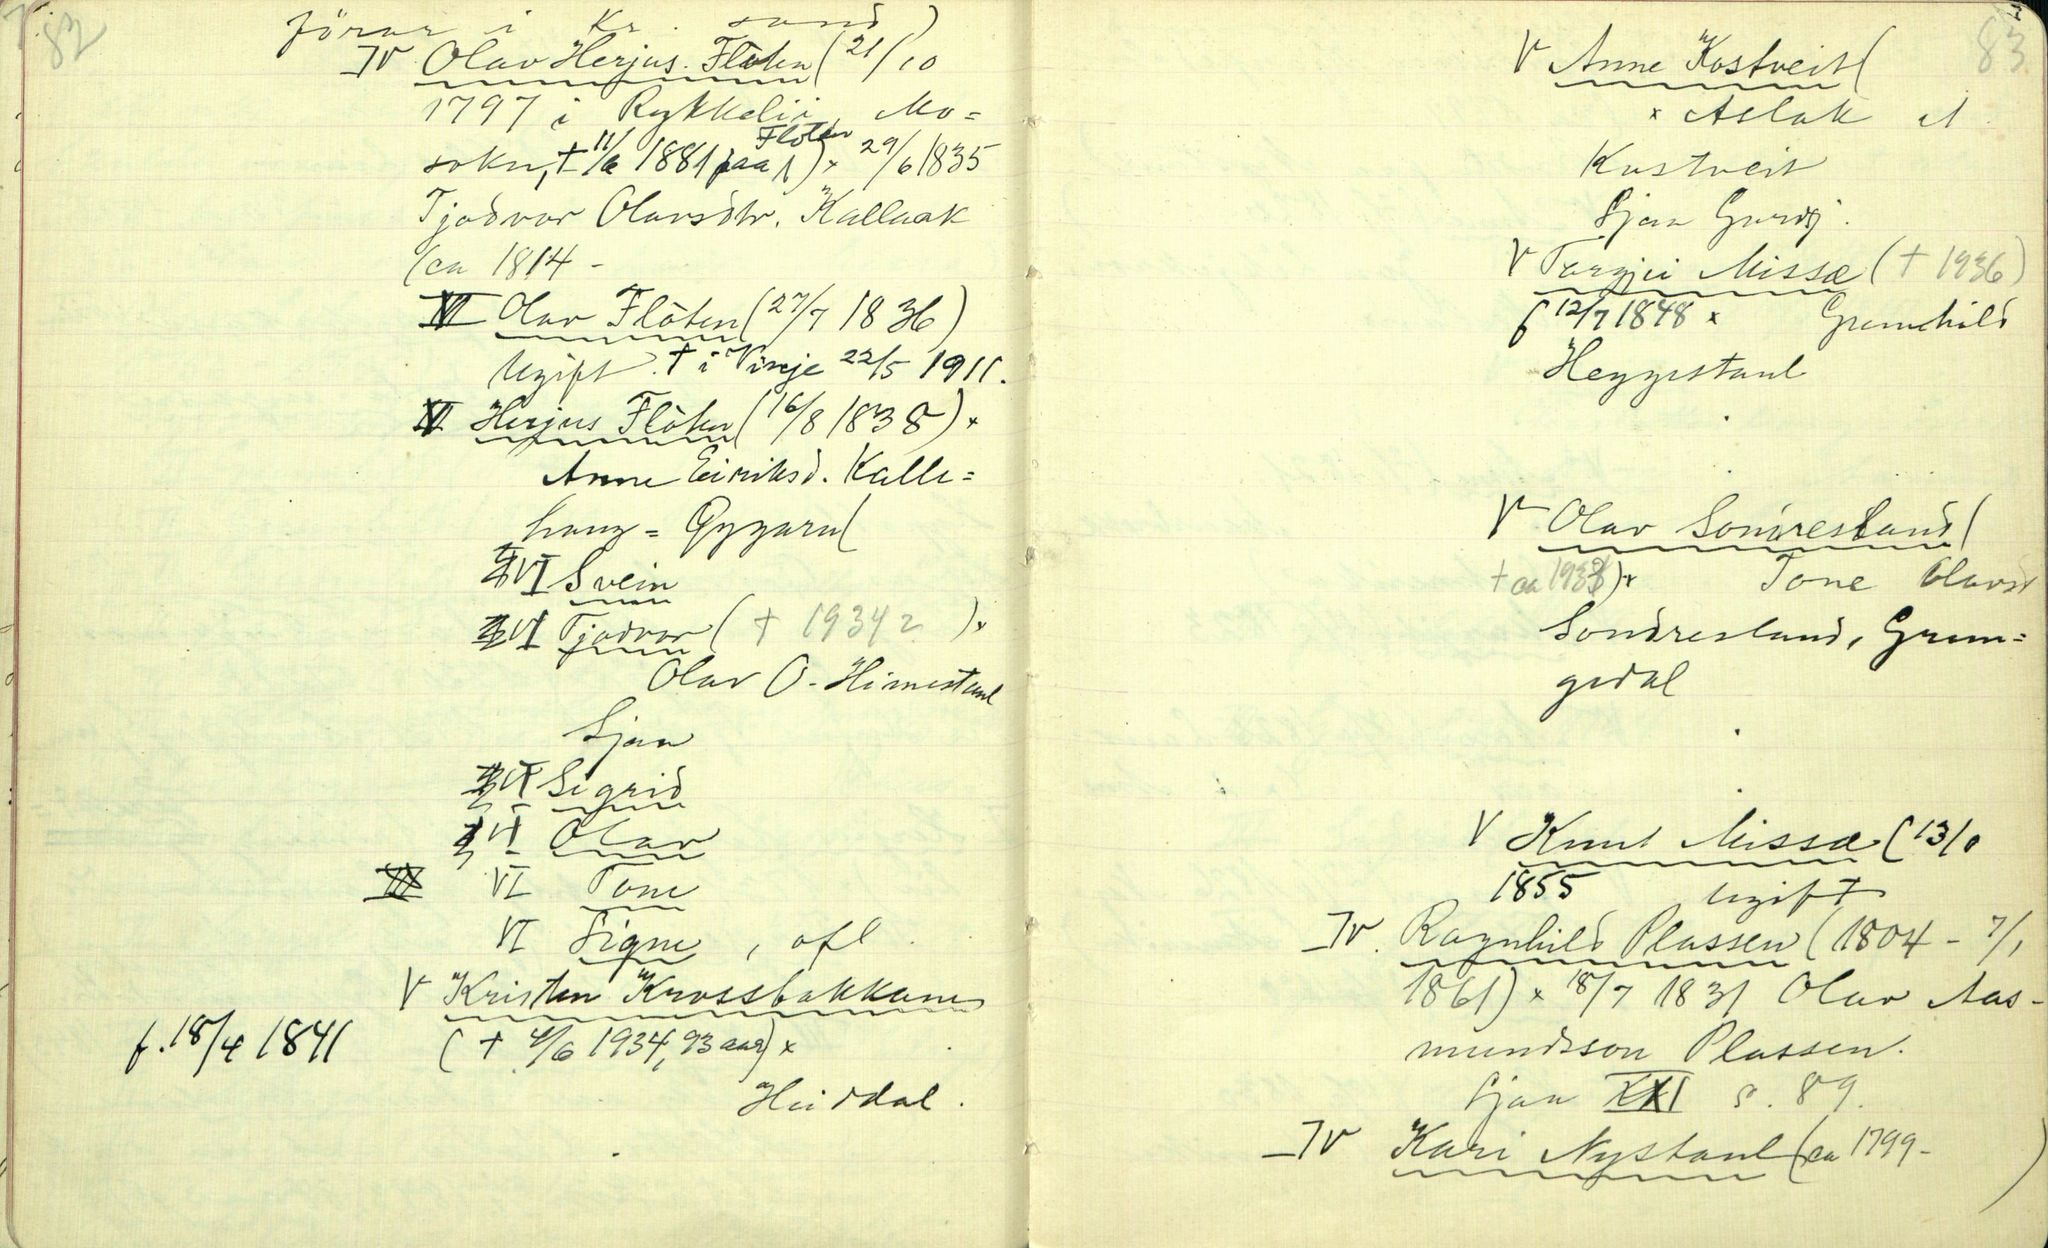 82
förar i Kr. sand)
IV Olav Herjus. Flöten (21/10
1797 i Rykkelii, Mo=
sokn, † 11/6 1881 paa Flöten) × 29/6 1835
Tjodvor Olavsdtr. Kallaak
(ca 1814 -
V Olav Flöten (27/7 1836)
Ugift. † i Vinje 22/5 1911.
V Herjus Flöten (16/8 1838) ×
Anne Eiriksd. Kalle=
haug = Gyggarn (
VI Svein
VI Tjodvor († 1934?) ×
Olav O. Himestaul
Sjaa
VI Sigrid
VI Olav
VI Tone
VI Signe, ofl.
V Kristen Krossbakkane
f. 18/4 1841 († 4/6 1934, 93 aar) ×
Heiddal.
83
V Anne Kostveit (
× Aslak A.
Kostveit
Sjaa Gurdsj.
V Targjei Missæ († 1936)
f 12/7 1848 × Gunnhild
Heggestaul
V Olav Sondresland (
† ca 1938) × Tone Olavsd
Sondresland, Grun=
gedal
V Knut Missæ (13/0
1855 ugift
IV. Ragnhild Plassen (1804 - 7/1
1861) × 18/7 1831 Olav Aas-
mundsson Plassen.
Sjaa XXI s. 89.
IV Kari Nystaul (ca 1799- )